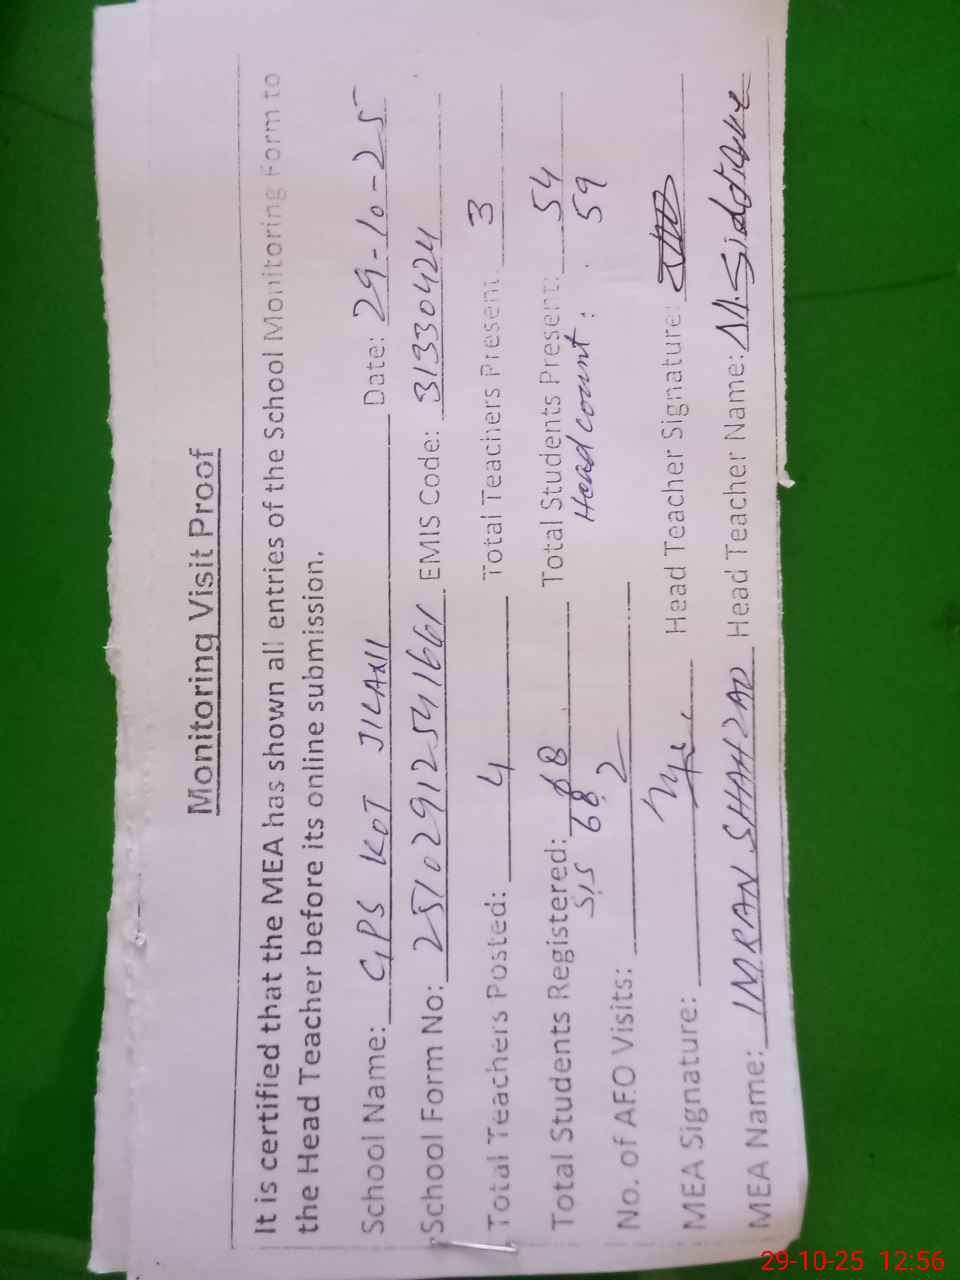 Monitoring Visit Proof
It is certified that the MEA has shown all entries of the School Monitoring Form to
the Head Teacher before its online submission.
School Name: GPS KOT JILANII Date: 29-10-25
School Form No: 25102912541661 EMIS Code: 31330424
Total Teachers Posted: 4 Total Teachers Present 3
Total Students Registered: 68 Total Students Present: 54
SIS 68 Head count : 59
No. of AEO Visits: 2
MEA Signature: Head Teacher Signature:
MEA Name: IMRAN SHAHZAD Head Teacher Name: M.Siddique
29-10-25 12:56